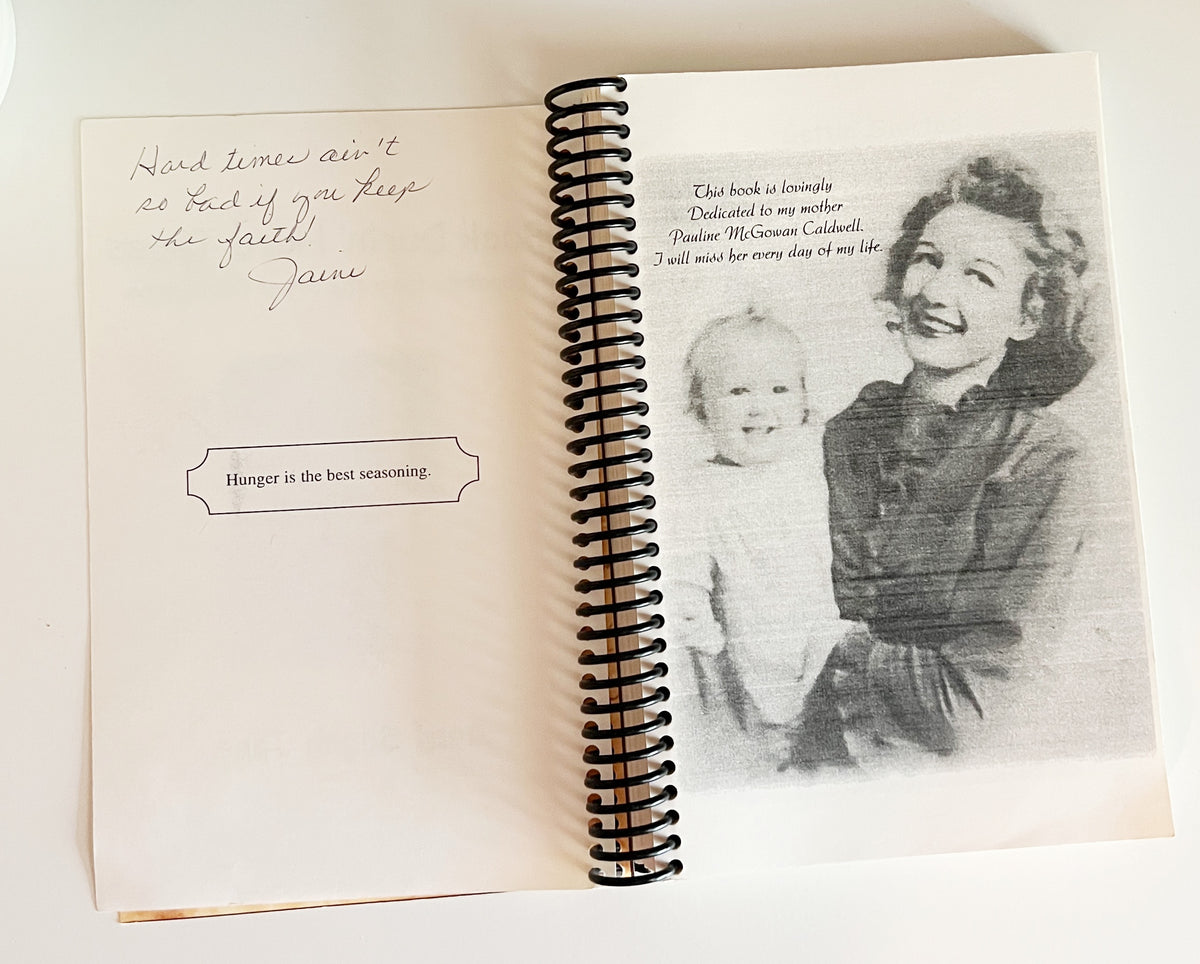 Hard times ain't
so bad if you keep
the faith!
Jaine
Hunger is the best seasoning.
This book is lovingly
Dedicated to my mother
Pauline McGowan Caldwell.
I will miss her every day of my life.